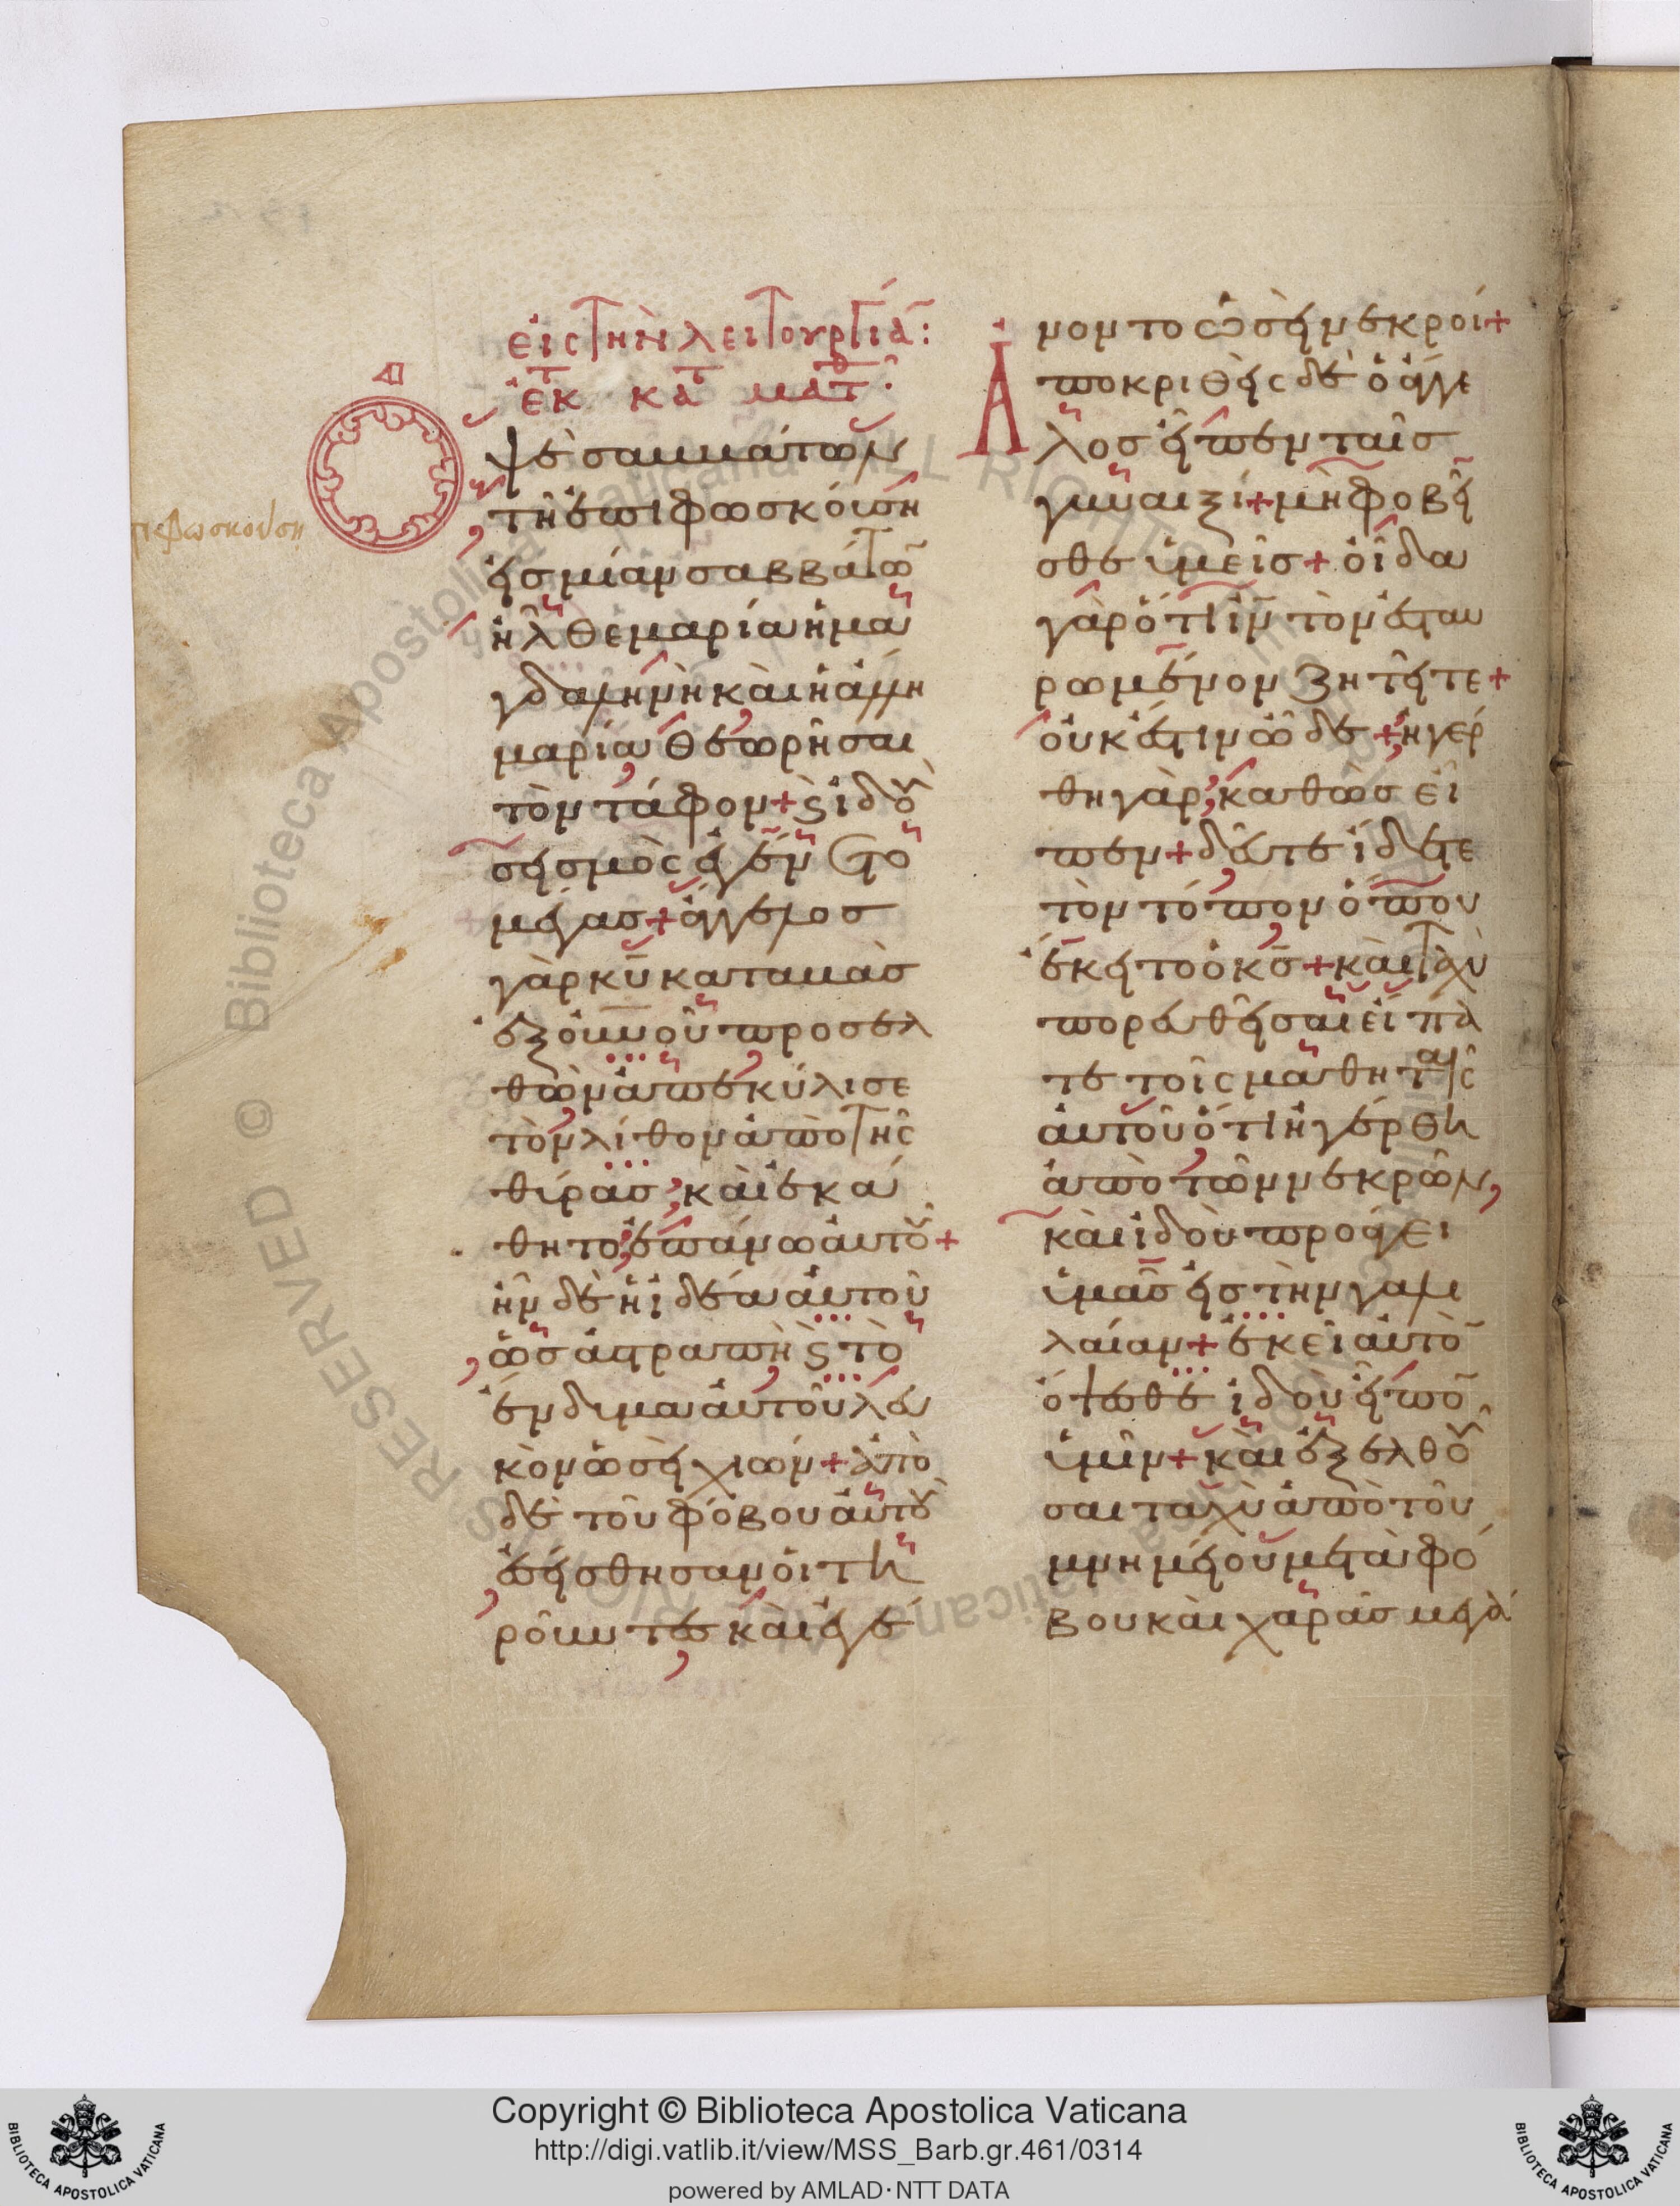 εἰς τὴν λειτουργίᾱ:
ἐκ τ κα τ ματθ·
Ο ψὲ σαμμάτων
τῆ ἐπιφοσκόυση
ἐπιφωσκούση
εἰσ μίαν σαββάτω̄
ἠλθε μαρία ἡ μα
γδαληνὴ καὶ ἡ ἄλλη
μαρία θεωρῆσαι
τὸν τάφον + ϛ ἰδοὺ
σεισμὸς ἐγένετο
μέγασ + ἄγγελοσ
γὰρ κ̅υ̅ καταμὰσ
ἐξ ὀυνοῦ προσελ
θὼν ἀπεκύλισε
τὸν λίθον ἀπὸ τῆς
θύρασ, καὶ ἐκά
θητο, ἐπάνω ἀυτοῦ +
ἦν δὲ ἡ ἰδέα ἀυτοῦ
ὡσ ἀστραπὴ ϛ τὸ
ἔνδιμα ἀυτοῦ λευ
κὸν ὡσεὶ χιών + ἀπὸ
δὲ τοῦ φόβου ἀυτοῦ
ἐσείσθησαν ὁι τη
ροῦντες καὶ ἐγέ
νοντο ὡσεὶ νεκροί +
Α ποκριθεὶς δὲ ὁ ἄγγε
λοσ εἶπεν ταῖσ
γυναιξί + μὴ φοβεῖ
σθε ὑμεῖσ + οἶδα
γὰρ ὅτι ι̅ν̅ τὸν ἐσταυ
ρωμένον ζητεῖτε +
οὐκ ἔστιν ὧδε + ἠγέρ
θη γὰρ, καθὼσ εἶ
πεν + δεῦτε ἴδετε
τὸν τόπον ὅπου
ἔκειτο ὁ κ̅σ̅ + καὶ ταχὺ
πορευθεῖσαι εἴπα
τε τοῖς μαθηταῖς
ἀυτοῦ ὅτι ἠγέρθη
ἀπὸ τῶν νεκρῶν,
καὶ ἰδοὺ προάγει
ὑμᾶσ εἰσ τὴν γαλι
λαίαν + ἐκεῖ ἀυτὸ̄
ὄψεσθε ἰδοὺ εἶπο̄
ὑμῖν + καὶ ἐξελθοῦ
σαι ταχὺ ἀπὸ τοῦ
μνημείου μετὰ φό
βου καὶ χαρᾶσ μεγά
Copyright © Biblioteca Apostolica Vaticana
http://digi.vatlib.it/view/MSS_Barb.gr.461/0314
powered by AMLAD·NTT DATA